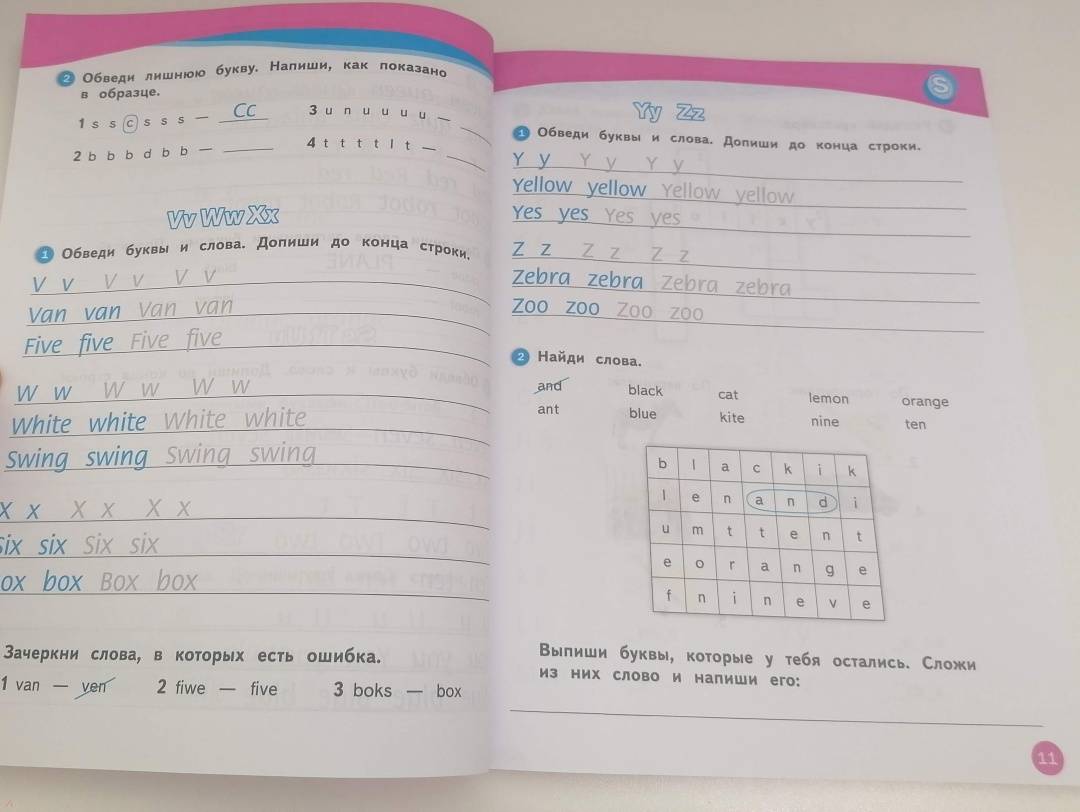 2 Обведи лишнюю букву. Напиши, как показано
в образце.
1 s s c s s s — Cc
3 u n u u u u —
2 b b b d b b —
4 t t t t l t —
Vv Ww Xx
1 Обведи буквы и слова. Допиши до конца строки.
V v V v V v
Van van Van van
Five five Five five
W w W w W w
White white White white
Swing swing Swing swing
X x X x X x
Six six Six six
ox box Box box
Зачеркни слова, в которых есть ошибка.
1 van — ven 2 fiwe — five 3 boks — box
S
Yy Zz
1 Обведи буквы и слова. Допиши до конца строки.
Y y Y y Y y
Yellow yellow Yellow yellow
Yes yes Yes yes
Z z Z z Z z
Zebra zebra Zebra zebra
Zoo zoo Zoo zoo
2 Найди слова.
and black cat lemon orange
ant blue kite nine ten
b l a c k i k
l e n a n d i
u m t t e n t
e o r a n g e
f n i n e v e
Выпиши буквы, которые у тебя остались. Сложи
из них слово и напиши его:
11